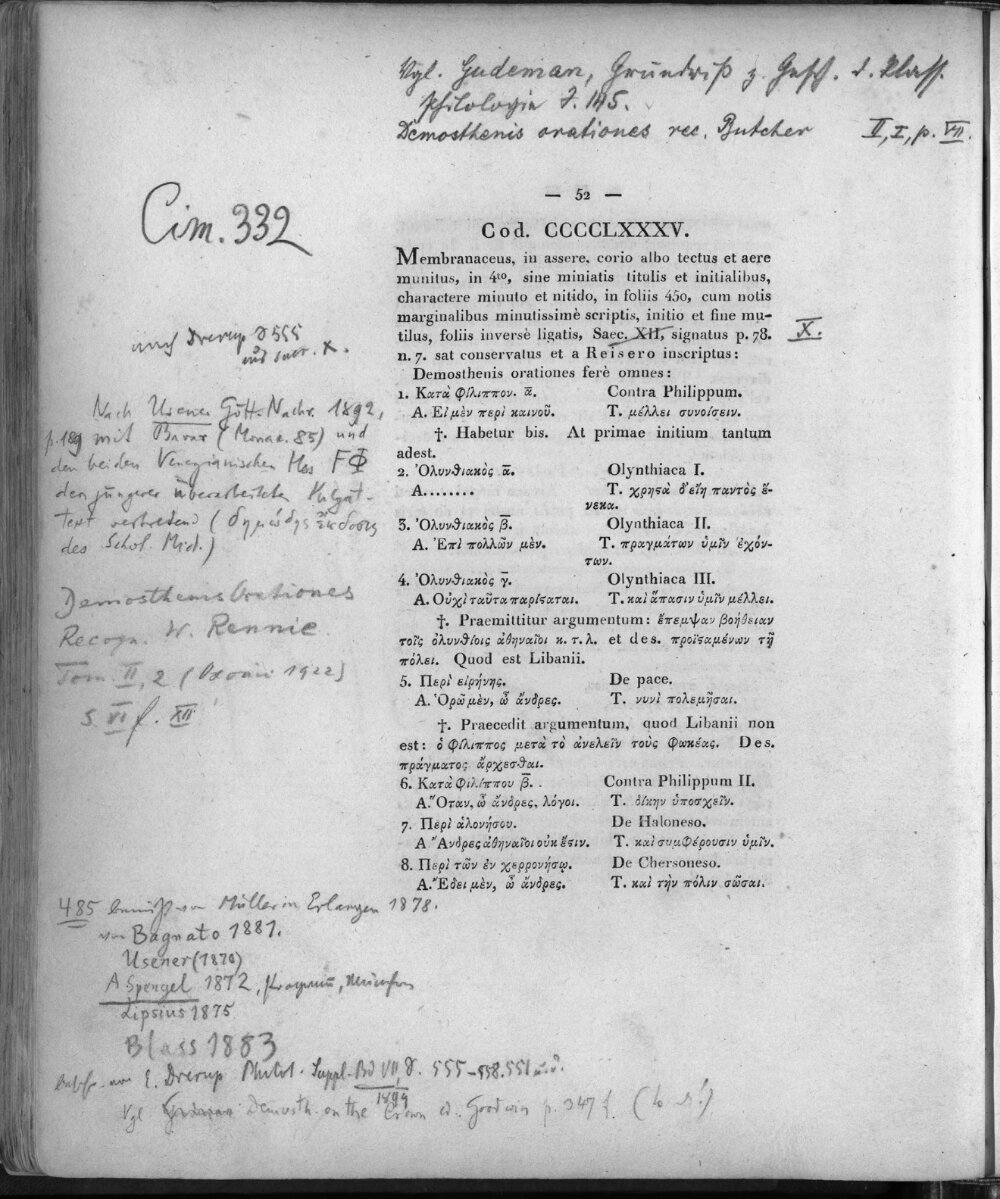 Vgl. Gudeman, Grundriß z. Gesch. d. klass.
Philologie S. 145.
Demosthenis orationes rec. Butcher II, I, p. VII.
— 52 —
Cim. 332
Cod. CCCCLXXXV.
Membranaceus, in assere, corio albo tectus et aere
munitus, in 4to, sine miniatis titulis et initialibus,
charactere minuto et nitido, in foliis 450, cum notis
marginalibus minutissimè scriptis, initio et fine mu-
tilus, foliis inversè ligatis, Saec. XII, signatus p. 78. X.
n. 7. sat conservatus et a Reisero inscriptus:
Demosthenis orationes ferè omnes:
1. Κατὰ Φίλιππον. α̅. Contra Philippum.
A. Εἰ μὲν περὶ καινοῦ. T. μέλλει συνοίσειν.
†. Habetur bis. At primae initium tantum
adest.
2. Ὀλυνθιακὸς α̅. Olynthiaca I.
A........ T. χρηστὰ δ'εἴη παντὸς ἕ-
νεκα.
3. Ὀλυνθιακὸς β̅. Olynthiaca II.
A. Ἐπὶ πολλῶν μὲν. T. πραγμάτων ὑμῖν ἐχόν-
των.
4. Ὀλυνθιακὸς γ̅. Olynthiaca III.
A. Οὐχὶ ταῦτα παρίσταται. T. καὶ ἅπασιν ὑμῖν μέλλει.
†. Praemittitur argumentum: ἔπεμψαν βοήθειαν
τοῖς ὀλυνθίοις ἀθηναῖοι κ. τ. λ. et des. προϊσταμένων τῇ
πόλει. Quod est Libanii.
5. Περὶ εἰρήνης. De pace.
A. Ὁρῶ μὲν, ὦ ἄνδρες. T. νυνὶ πολεμῆσαι.
†. Praecedit argumentum, quod Libanii non
est: ὁ φίλιππος μετὰ τὸ ἀνελεῖν τοὺς φωκέας. Des.
πράγματος ἄρχεσθαι.
6. Κατὰ Φιλίππου β̅. Contra Philippum II.
A. Ὅταν, ὦ ἄνδρες, λόγοι. T. δίκην ὑποσχεῖν.
7. Περὶ ἁλονήσου. De Haloneso.
A Ἄνδρες ἀθηναῖοι οὐκ ἔστιν. T. καὶ συμφέρουσιν ὑμῖν.
8. Περὶ τῶν ἐν χερρονήσῳ. De Chersoneso.
A. Ἔδει μὲν, ὦ ἄνδρες. T. καὶ τὴν πόλιν σῶσαι.
nach Drerup S 555
saec. X.
Nach Usener Gött. Nachr. 1892,
p. 189 mit Bavar (Monac. 85) und
den beiden Venezianischen Hss F Φ
den jüngeren überarbeiteten Vulgat-
text vertretend (δημώδης ἔκδοσις
des Schol. Mid.)
Demosthenis Orationes
Recogn. W. Rennie
Tom. II, 2 (Oxonii 1922)
S. VI f. XII
485 benützt von Müller in Erlangen 1878.
von Bagnato 1881.
Usener (1870)
A Spengel 1872, München
Lipsius 1875
Blass 1883
E. Drerup Philol. Suppl. Bd VII, S. 555–558. 551
1899
Vgl Demosth. on the Crown ed. Goodwin p. 347 f.